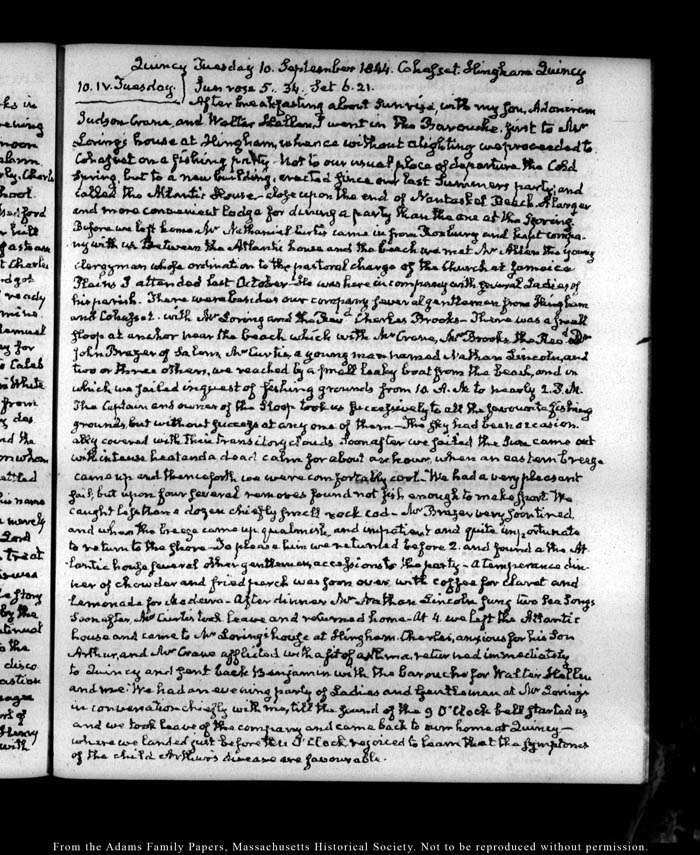 Quincy Tuesday 10. September 1844. Cohasset. Hingham Quincy
10. IV. Tuesday. Sun rose 5. 34. Set 6. 21.
After breakfasting about Sunrise, with my Son, Adoniram
Judson Crane, and Walter Hellen, I went in the Barouche, first to Mr
Loring's house at Hingham, whence without alighting we proceeded to
Cohasset on a fishing party - not to our usual place of departure the Cold
Spring, but to a new building, erected since our last Summers party, and
called the Atlantic House - close upon the end of Nantasket Beach. A larger
and more convenient lodge for dining a party than the one at the Spring
Before we left home Mr Nathaniel Curtis came in from Roxbury and kept compa-
ny with us. Between the Atlantic house and the beach we met Mr Allen the young
clergyman whose ordination to the pastoral charge of the Church at Jamaica
Plains I attended last October - He was here in company with several Ladies of
his parish. There were besides our company several gentlemen from Hingham
and Cohasset. with Mr Loring and the Revd Charles Brooks - There was a small
sloop at anchor near the beach which with Mr Crane, Mr Brooks, the Revd Dr
John Brazer of Salem, Mr Curtis, a young man named Nathan Lincoln, and
two or three others, we reached by a small leaky boat from the beach, and in
which we sailed in quest of fishing grounds from 10. A.M. to nearly 2. P.M.
The Captain and owner of the Sloop took us successively to all the favourite fishing
grounds, but without success at any one of them - The sky had been occasion-
ally covered with thin transitory clouds. Soon after we sailed the Sun came out
with intense heat and a dead calm for about an hour, when an eastern breeze
came up and thenceforth we were comfortably cool - We had a very pleasant
sail, but upon four several removes found not fish enough to make sport. We
caught less than a dozen chiefly small rock cod - Mr Brazer very soon tired,
and when the breeze came up qualmish, and impatient and quite importunate
to return to the shore - To please him we returned before 2. and found at the At-
lantic house several other gentlemen, accessions to the party - A temperance din-
ner of chowder and fried perch was soon over with coffee for claret and
Lemonade for Madeira - After dinner Mr Nathan Lincoln sung two Sea Songs
Soon after, Mr Curtis took leave and returned home - At 4. we left the Atlantic
house and came to Mr Loring's house at Hingham. Charles, anxious for his Son
Arthur, and Mr Crane afflicted with a fit of asthma, returned immediately
to Quincy and sent back Benjamin with the barouche for Walter Hellen
and me. We had an evening party of Ladies and Gentlemen at Mr Loring's
in conversation chiefly with me, till the sound of the 9 O'Clock bell startled us
and we took leave of the company and came back to our home at Quincy -
where we landed just before 11 O'Clock rejoiced to learn that the symptoms
of the child Arthur's disease are favourable.
From the Adams Family Papers, Massachusetts Historical Society. Not to be reproduced without permission.